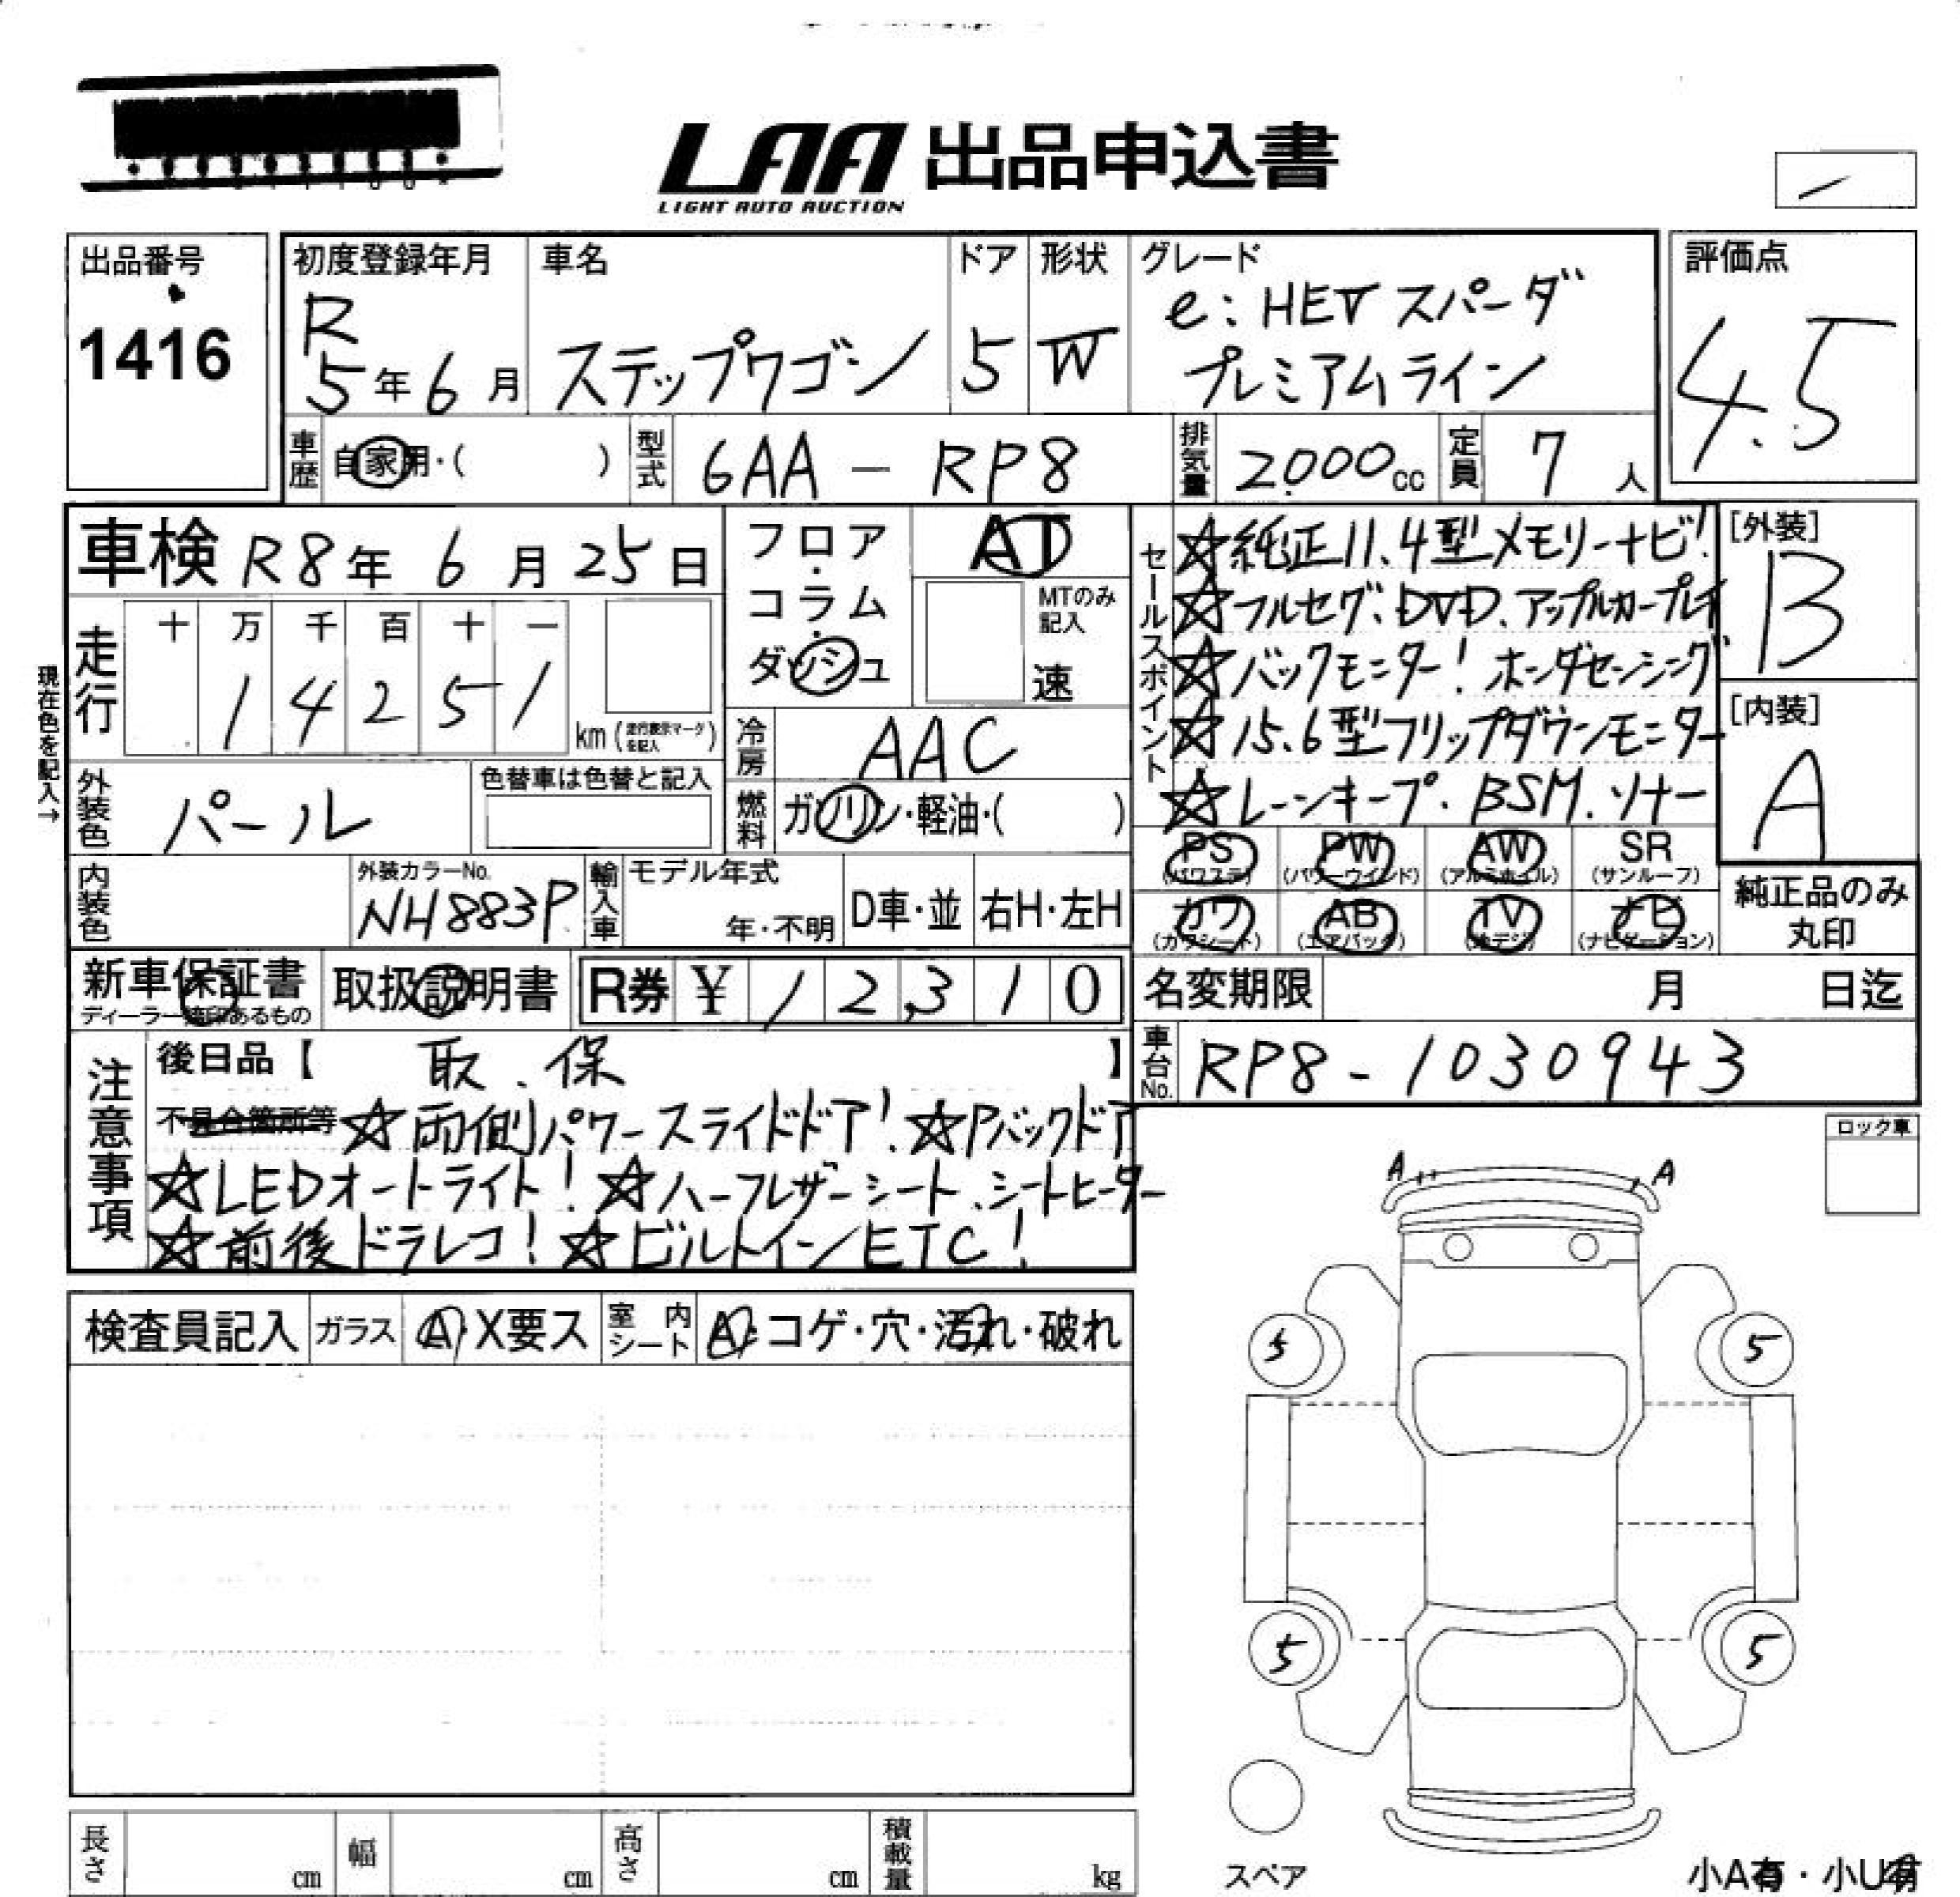 LAA 出品申込書
LIGHT AUTO AUCTION
出品番号
1416
初度登録年月
R
5年6月
車名
ステップワゴン
ドア
5
形状
W
グレード
e:HEV スパーダ
プレミアムライン
評価点
4.5
車歴
自家用・( )
型式
6AA - RP8
排気量
2000cc
定員
7人
車検 R8年 6月25日
走行
十 万 千 百 十 一
1 4 2 5 1
km (走行表示マークを記入)
現在色を記入→
フロア・コラム・ダッシュ
AT
MTのみ記入
速
冷房
AAC
燃料
ガソリン・軽油・( )
セールスポイント
☆純正11.4型メモリーナビ!
☆フルセグ、DVD、アップルカープレイ
☆バックモニター! ホンダセンシング
☆15.6型フリップダウンモニター
☆レーンキープ・BSM.ソナー
[外装]
B
[内装]
A
外装色
パール
色替車は色替と記入
内装色
外装カラーNo.
NH883P
輸入車
モデル年式
年・不明
D車・並
右H・左H
PS (パワステ)
PW (パワーウインド)
AW (アルミホイル)
SR (サンルーフ)
カワ (カワシート)
AB (エアバック)
TV (地デジ)
ナビ (ナビゲーション)
純正品のみ
丸印
新車保証書
ディーラー捺印あるもの
取扱説明書
R券 ¥ 12,310
名変期限 月 日迄
車台No.
RP8-1030943
注意事項
後日品【 取.保 】
不具合箇所等 ☆両側パワースライドドア! ☆Pバックドア
☆LEDオートライト! ☆ハーフレザーシート、シートヒーター
☆前後ドラレコ! ☆ビルトインETC!
ロック車
A
A
検査員記入
ガラス
A・X要ス
室内シート
A・コゲ・穴・汚れ・破れ
5
5
5
5
スペア
小A有・小U有
長さ cm
幅 cm
高さ cm
積載量 kg